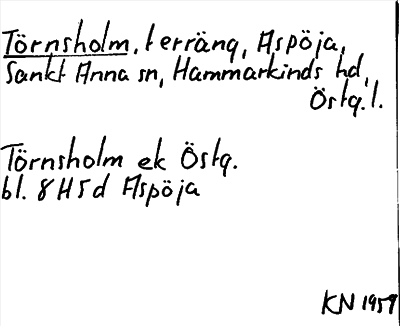 Törnsholm, terräng, Aspöja,
Sankt Anna sn, Hammarkinds hd,
Östg.l.
Törnsholm ek Östg.
bl. 8H5d Aspöja
KN 1959